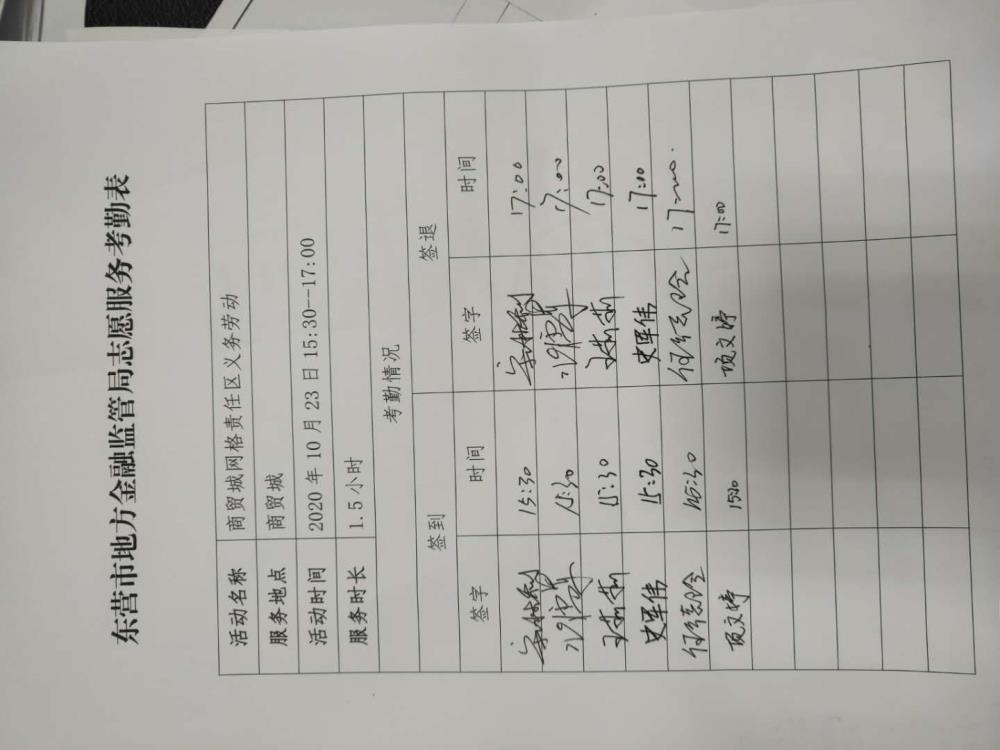 东营市地方金融监管局志愿服务考勤表
活动名称 商贸城网格责任区义务劳动
服务地点 商贸城
活动时间 2020年10月23日15:30--17:00
服务时长 1.5小时
考勤情况
签到 签退
签字 时间 签字 时间
15:30 17:00
15:30 17:00
王莉莉 15:30 王莉莉 17:00
史军伟 15:30 史军伟 17:00
15:30 17:00
项文婷 1530 项文婷 17:00